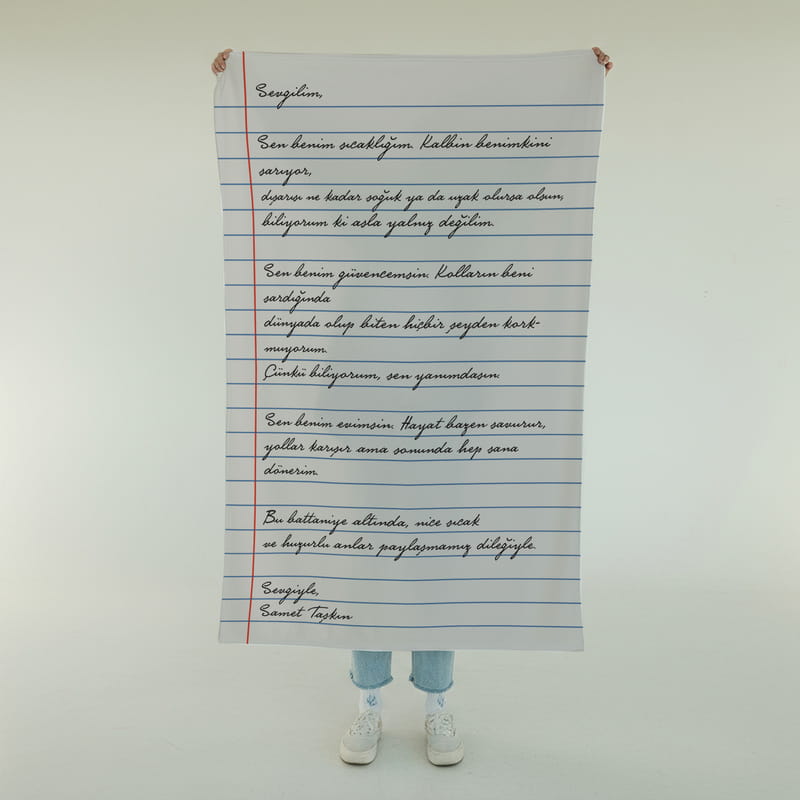 Sevgilim,
Sen benim sıcaklığım. Kalbin benimkini
sarıyor,
dışarısı ne kadar soğuk ya da uzak olursa olsun,
biliyorum ki asla yalnız değilim.
Sen benim güvencemsin. Kolların beni
sardığında
dünyada olup biten hiçbir şeyden kork-
muyorum.
Çünkü biliyorum, sen yanımdasın.
Sen benim evimsin. Hayat bazen savurur,
yollar karışır ama sonunda hep sana
dönerim.
Bu battaniye altında, nice sıcak
ve huzurlu anlar paylaşmamız dileğiyle.
Sevgiyle,
Samet Taşkın